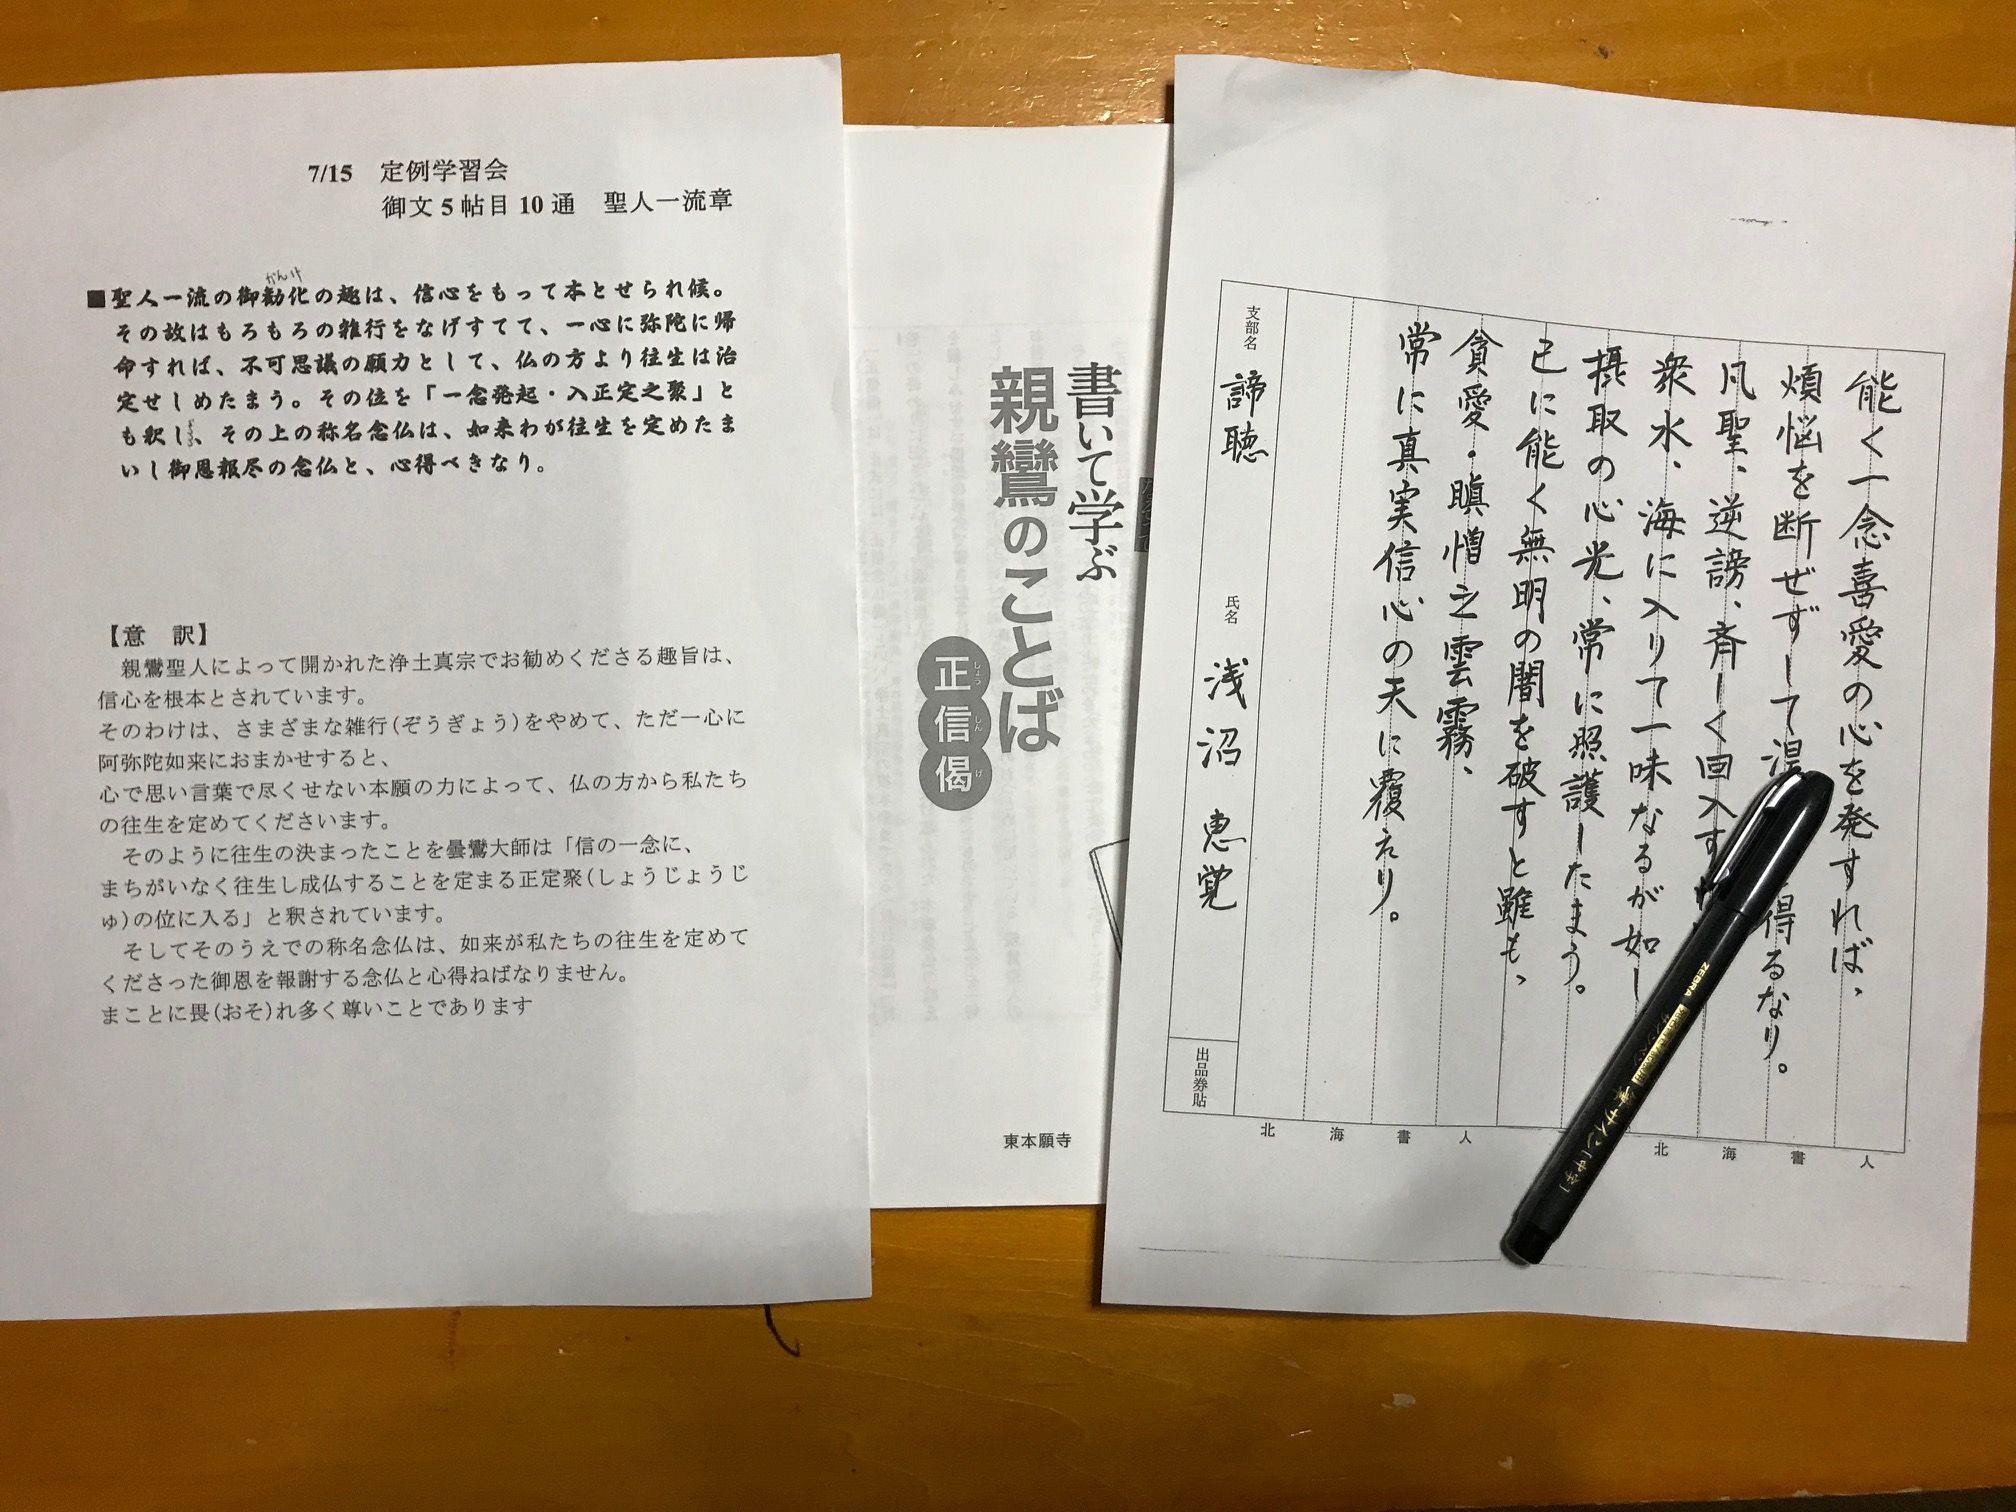 7/15　定例学習会
御文5帖目10通　聖人一流章
かんけ
■聖人一流の御勧化の趣は、信心をもって本とせられ候。
その故はもろもろの雑行をなげすてて、一心に弥陀に帰
命すれば、不可思議の願力として、仏の方より往生は治
定せしめたまう。その位を「一念発起・入正定之聚」と
も釈し、その上の称名念仏は、如来わが往生を定めたま
いし御恩報尽の念仏と、心得べきなり。
【意　訳】
親鸞聖人によって開かれた浄土真宗でお勧めくださる趣旨は、
信心を根本とされています。
そのわけは、さまざまな雑行(ぞうぎょう)をやめて、ただ一心に
阿弥陀如来におまかせすると、
心で思い言葉で尽くせない本願の力によって、仏の方から私たち
の往生を定めてくださいます。
そのように往生の決まったことを曇鸞大師は「信の一念に、
まちがいなく往生し成仏することを定まる正定聚(しょうじょうじ
ゅ)の位に入る」と釈されています。
そしてそのうえでの称名念仏は、如来が私たちの往生を定めて
くださった御恩を報謝する念仏と心得ねばなりません。
まことに畏(おそ)れ多く尊いことであります
書いて学ぶ
親鸞のことば
正信偈
しょうしんげ
東本願寺
能く一念喜愛の心を発すれば、
煩悩を断ぜずして得るなり。
凡聖、逆謗、斉しく回入す
衆水、海に入りて一味なるが如し
摂取の心光、常に照護したまう。
已に能く無明の闇を破すと雖も、
貪愛・瞋憎之雲霧、
常に真実信心の天に覆えり。
支部名　諦聴　氏名　浅沼　恵覚
出品券貼
人　書　海　北　人　書　海　北
ZEBRA 筆サイン[中字]